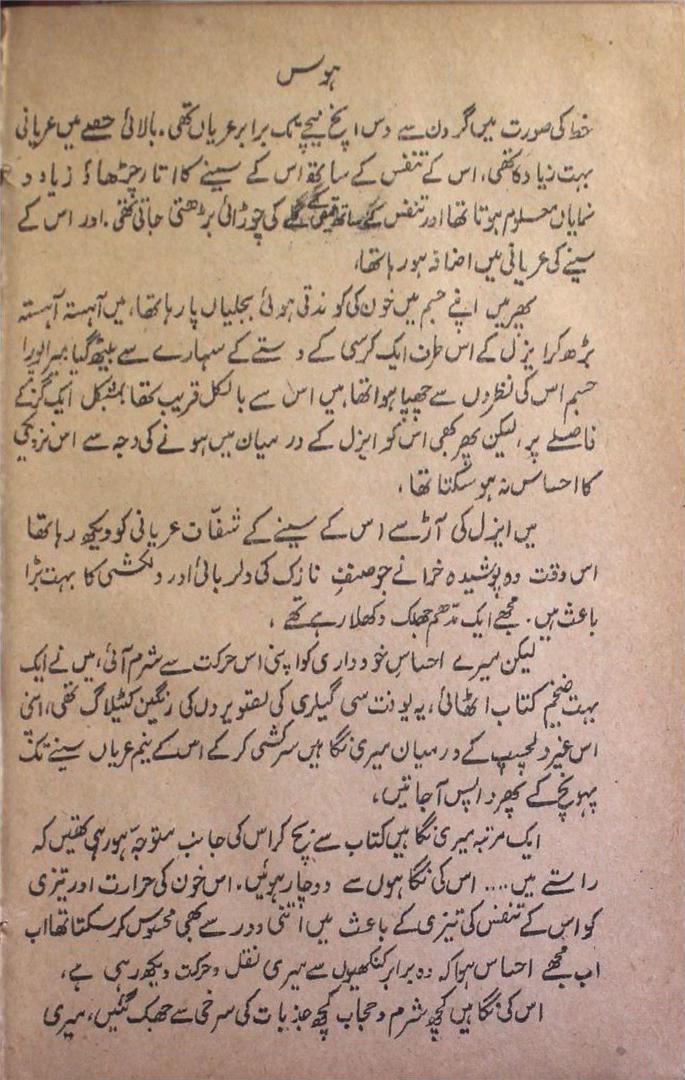 ہوس
خط کی صورت میں گردن سے دس اپنچ نیچے تک برابر عریاں تھی۔ بالائی حصے میں عریانی
بہت زیادہ تھی، اس کے تنفس کے ساتھ اس کے سینے کا اتار چڑھاؤ زیادہ
نمایاں معلوم ہوتا تھا اور تنفس کے ساتھ کی چوڑائی بڑھتی جاتی تھی۔ اور اس کے
سینے کی عریانی میں اضافہ ہو رہا تھا،
پھر میں اپنے جسم میں خون کی کوندتی ہوئی بجلیاں پا رہا تھا، میں آہستہ آہستہ
بڑھ کر ایزل کے اس طرف ایک کرسی کے دستے کے سہارے سے بیٹھ گیا میرا پورا
جسم اس کی نظروں سے چھپا ہوا تھا میں اس سے بالکل قریب تھا بمشکل ایک گز کے
فاصلے پر، لیکن پھر بھی اس کو ایزل کے درمیان میں ہونے کی وجہ سے اس نزدیکی
کا احساس نہ ہو سکتا تھا،
میں ایزل کی آڑ سے اس کے سینے کے شفاف عریانی کو دیکھ رہا تھا
اس وقت وہ پوشیدہ خزانے جو صنفِ نازک کی دلربائی اور دلکشی کا بہت بڑا
باعث ہیں۔ مجھے ایک مدّھم جھلک دکھلا رہے تھے،
لیکن میرے احساسِ خودداری کو اپنی اس حرکت سے شرم آئی، میں نے ایک
بہت ضخیم کتاب اٹھائی، یہ بونت سی گیلری کی تصویروں کی رنگین کٹیلاگ تھی، اپنی
اس غیر دلچسپ کے درمیان میری نگاہیں سرکشی کر کے اس کے نیم عریاں سینے تک
پہونچ کے پھر واپس آ جاتیں،
ایک مرتبہ میری نگاہیں کتاب سے بچ کر اس کی جانب متوجّہ ہو رہی تھیں کہ
راستے میں.... اس کی نگاہوں سے دوچار ہوئیں۔ اس خون کی حرارت اور تیزی
کو اس کے تنفس کی تیزی کے باعث میں اتنی دور سے بھی محسوس کر سکتا تھا اب
اب مجھے احساس ہوا کہ وہ برابر کنکھیوں سے میری نقل و حرکت دیکھ رہی ہے،
اس کی نگاہیں کچھ شرم و حجاب کچھ جذبات کی سرخی سے جھک گئیں، میری